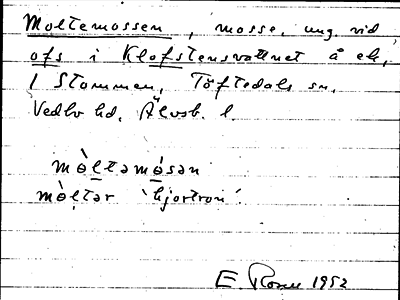 Moltemossen, mosse, ung. vid
ofs i Klofstensvattnet å ek,
1 Stommen, Töftedals sn,
Vedbo hd, Älvsb. l.
mòltəmósən
mòltər 'hjortron'.
E. 1952